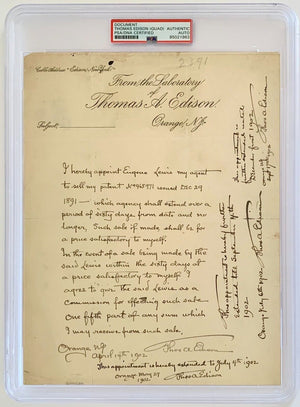 DOCUMENT
THOMAS EDISON (QUAD)
PSA/DNA CERTIFIED
AUTHENTIC
AUTO
2391
Cable Address "Edison, New York"
From the Laboratory
of
Thomas A. Edison,
Orange, N.J.
Subject
I hereby appoint Eugene Lewis my agent
to sell my patent No 465971 issued Dec 29
1891 — which agency shall extend over a
period of sixty days from date and no
longer, Such sale if made shall be for
a price satisfactory to myself.
In the event of a sale being made by the
said Lewis within the sixty days at
a price satisfactory to myself I
agree to give the said Lewis as a
commission for effecting such sale
one fifth part of any sum which
I may receive from such sale.
Orange, NJ
April 19th 1902
Thos A Edison
This appointment is hereby extended to July 4th 1902
Orange May 27
1902
Thos A Edison
This appointment is hereby further
extended till September 4th
1902
Orange July 6th 1902 Thos A Edison
This appointment is
further extended until
1902
Thos A Edison